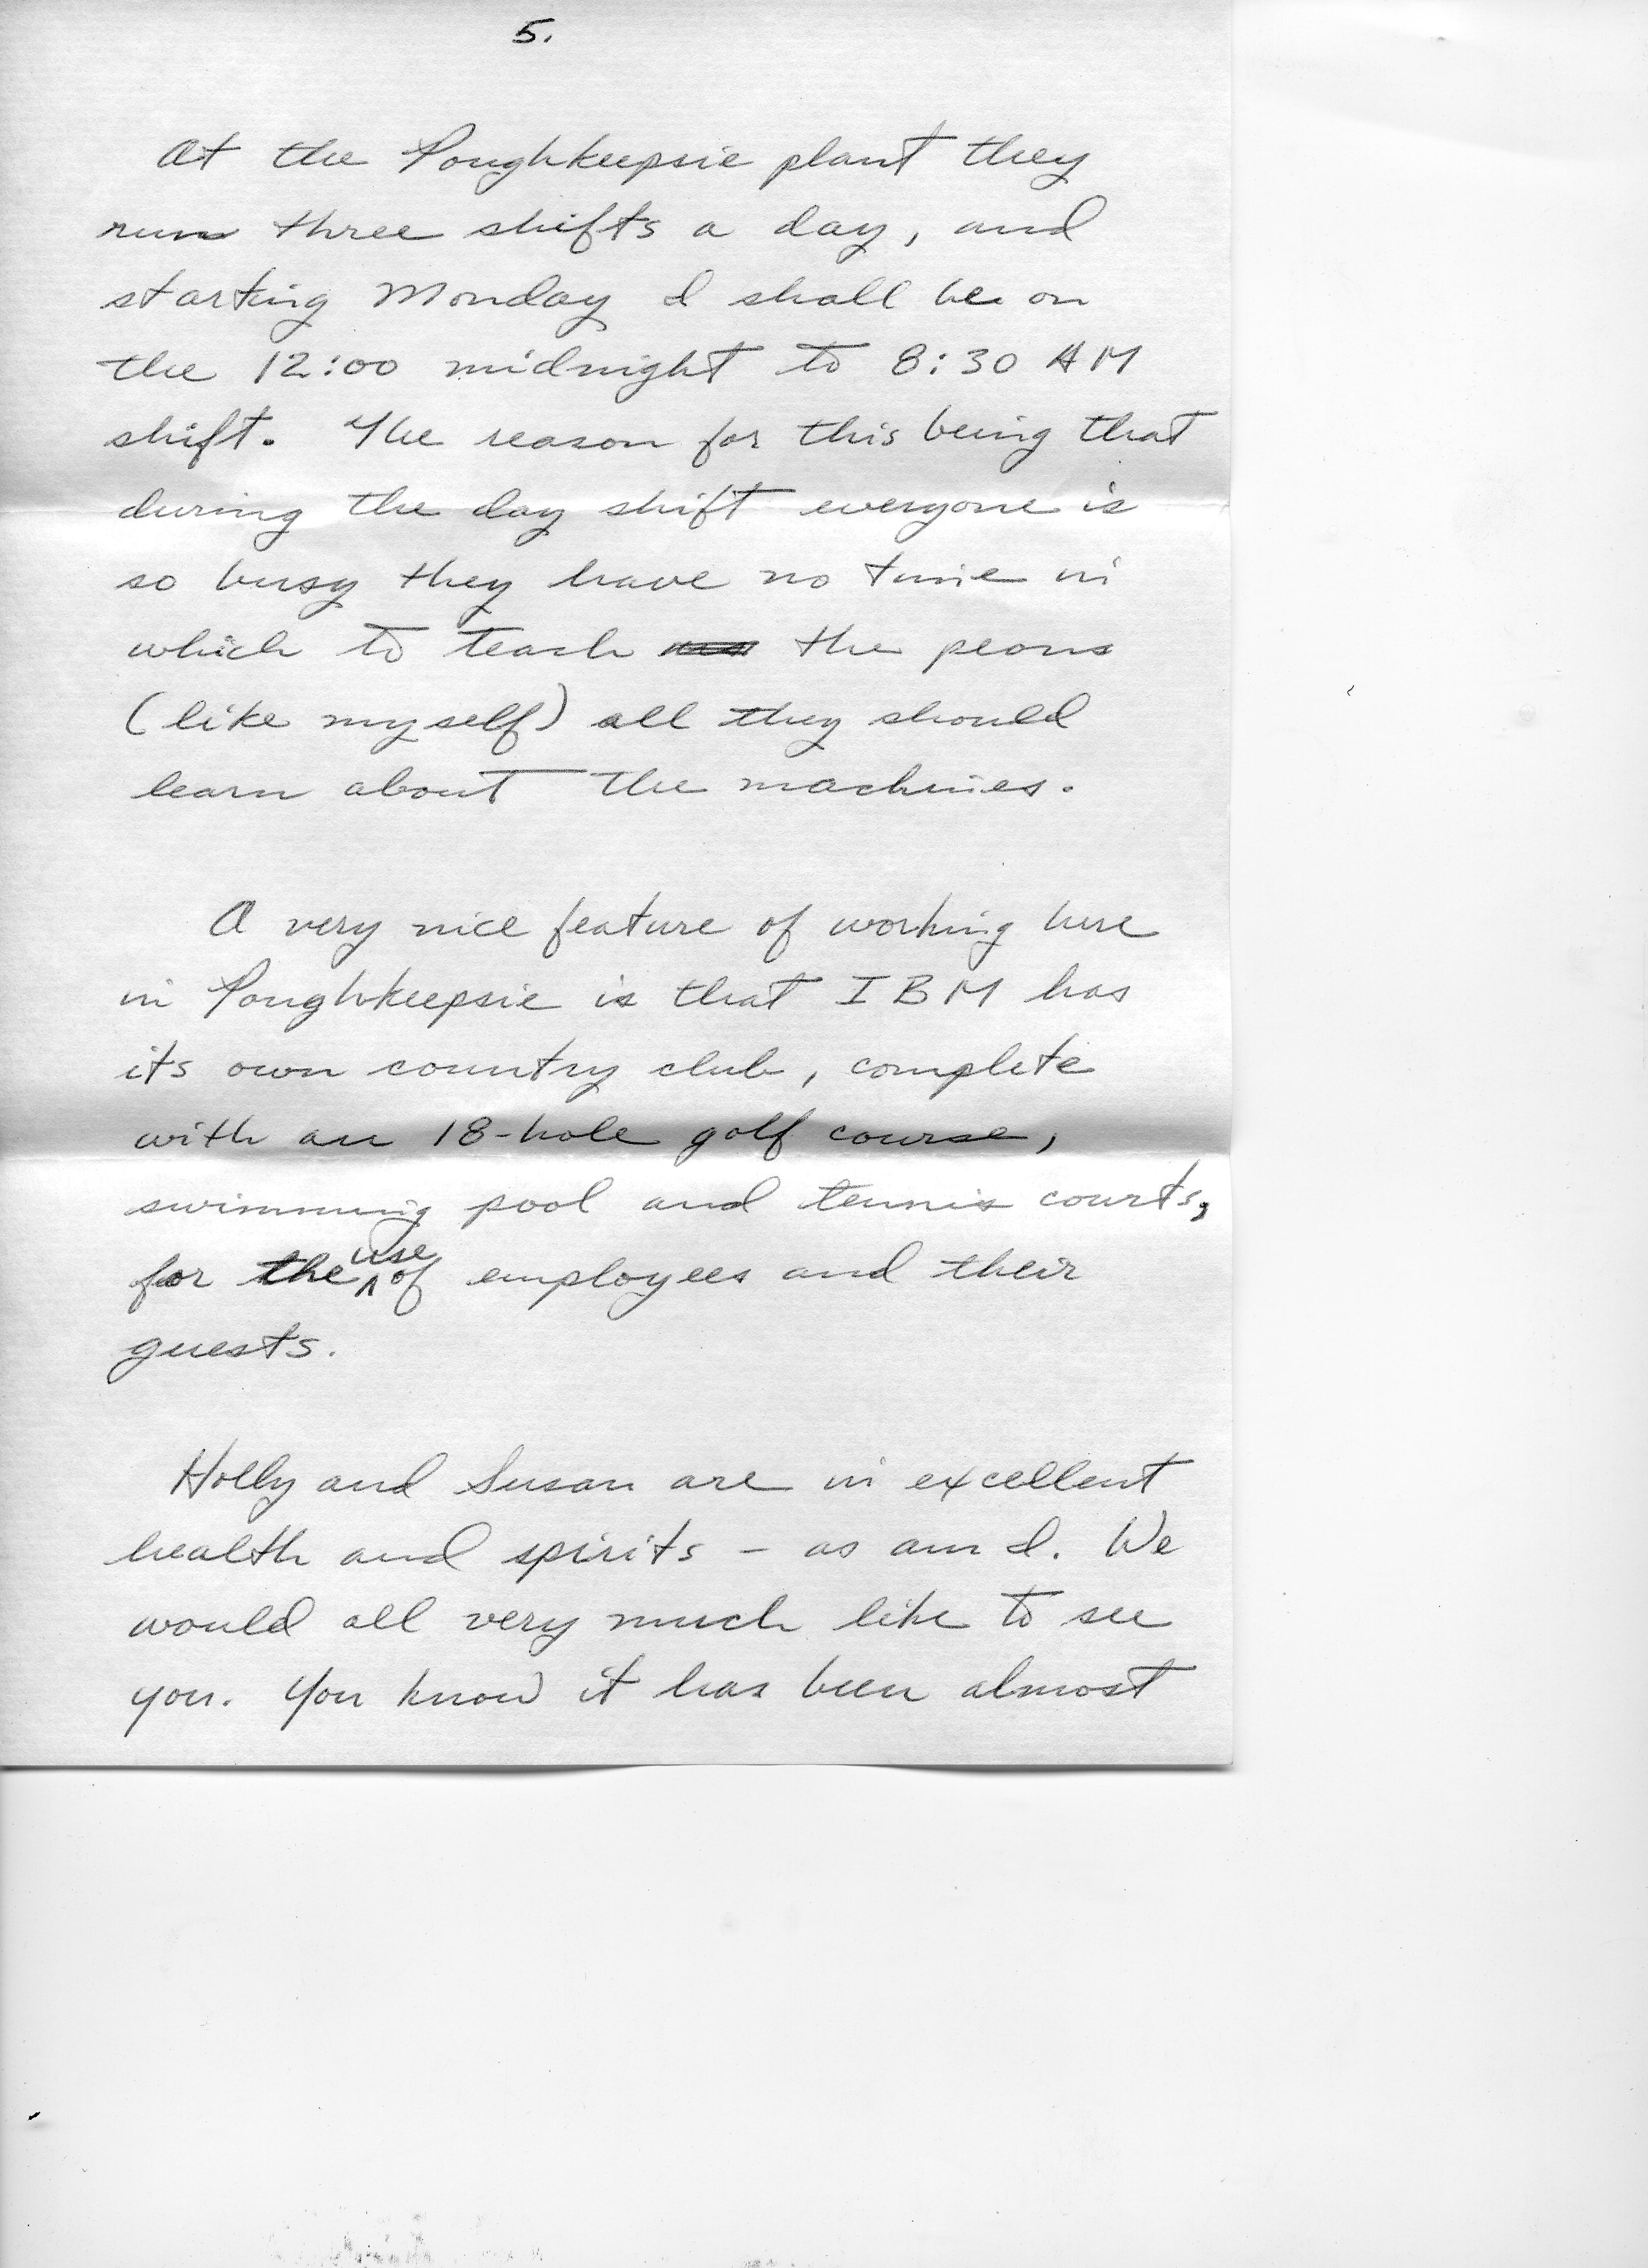 5.
At the Poughkeepsie plant they
run three shifts a day, and
starting Monday I shall be on
the 12:00 midnight to 8:30 AM
shift. The reason for this being that
during the day shift everyone is
so busy they have no time in
which to teach the peons
(like myself) all they should
learn about the machines.
A very nice feature of working here
in Poughkeepsie is that IBM has
its own country club, complete
with an 18-hole golf course,
swimming pool and tennis courts,
for the use of employees and their
guests.
Holly and Susan are in excellent
health and spirits - as am I. We
would all very much like to see
you. You know it has been almost